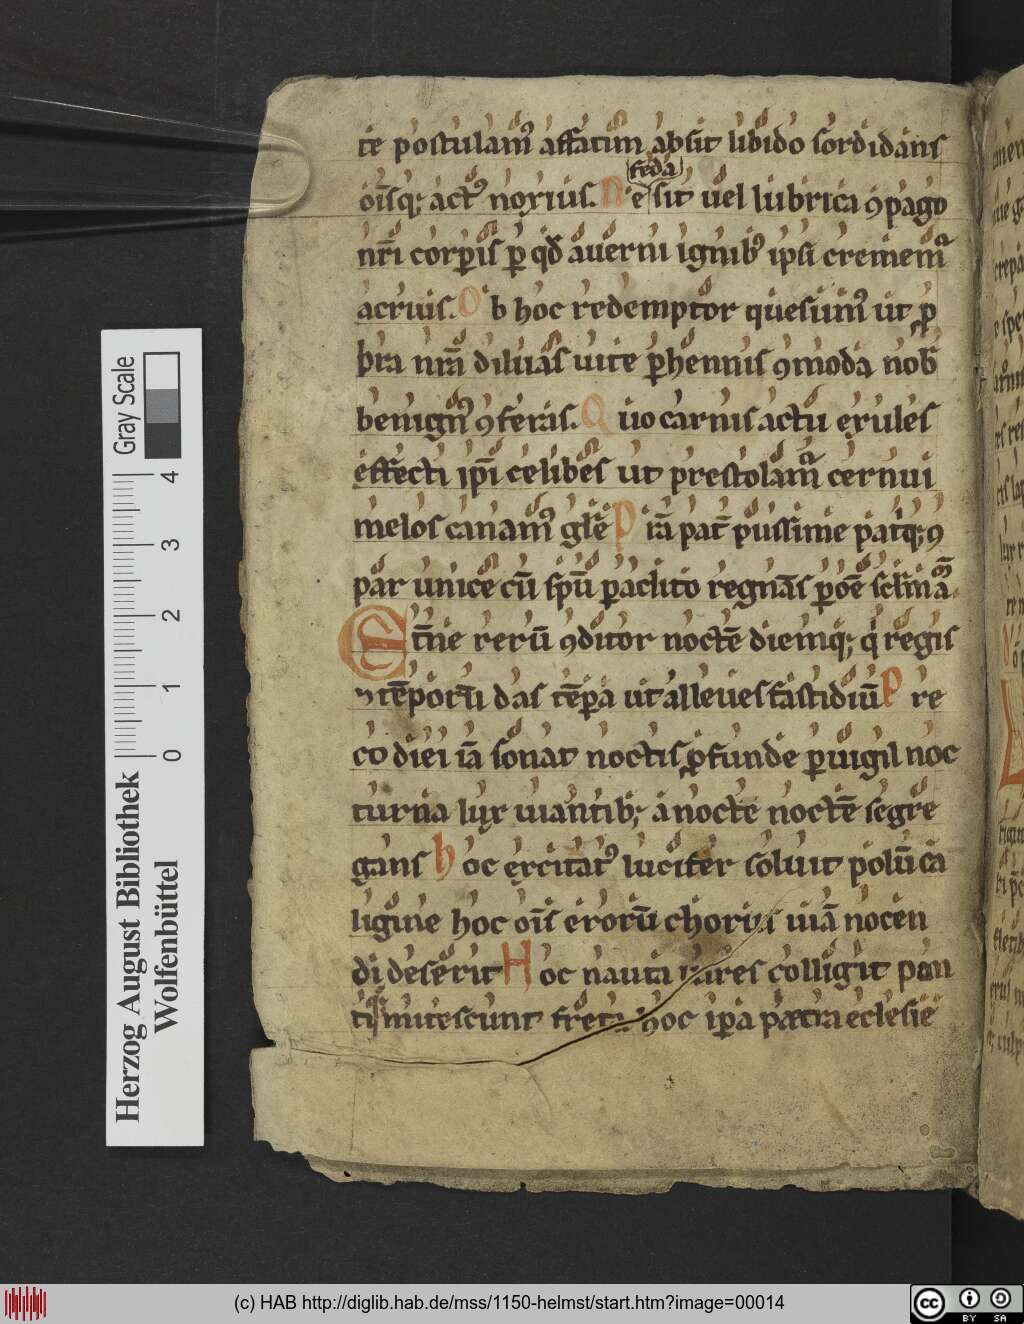 te postulam᷒ affatim absit libido sordidans
feda
oīsq; act᷒ noxius. N e sit uel lubrica ꝯpago
nr̄i corꝑis ꝑ qđ auerni ignib᷒ ipsi crememᷓ
acrius. O b hoc redemptor quesum᷒ ut ꝓ
bra nr̄a diluas uite ꝑhennis ꝯmoda nob̄
benign᷒ ꝯferas. Q uo carnis actu exules
effecti ip̄i celibes ut prestolamᷓ cernui
melos canam᷒ glr̄e P ra᷒ pat̄ piissime patͥq; ꝯ
par unice cū sp̄u ꝑaclito regnās ꝑ oē sclm̄ aͫ.
Et̄ne rerū ꝯditor noctē diemq; qͥ regis
⁊ tēporū das tēpa ut alleues fastidiū P re
co diei iā sonat noctis ꝓfunde ꝑuigil noc
turna lux uiantib; a nocte noctē segre
gans H oc excitat᷒ lucifer soluit polū ca
ligine hoc oīs erorū chorus uiā nocen
di deserit H oc nauta uires colligit pon
tiqͥ mitescunt freta hoc ip̄a petra eclesie
Gray Scale
4
3
2
1
0
Herzog August Bibliothek
Wolfenbüttel
(c) HAB http://diglib.hab.de/mss/1150-helmst/start.htm?image=00014
cc
BY SA